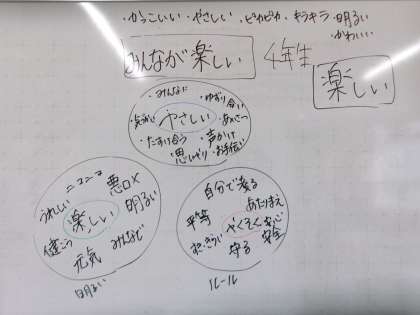 ・かっこいい ・やさしい ・ピカピカ ・キラキラ ・明るい
・かわいい
みんなが楽しい 4年生
楽しい
・みんなに
・ゆずり合い
・やさしい
・あいさつ
・たすけ合う ・声かけ
・思いやり ・お手伝い
ニコニコ 悪口×
うれしい 楽しい 明るい
健こう 元気 みんなで
明るい
自分で考る
平等 あたりまえ
やくそく 安心
守る 安全
ルール